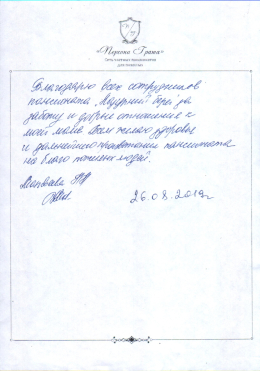 «Персона Грата»
Сеть частных пансионатов
для пожилых
Благодарю всех сотрудников
пансионата „Лазурный берег" за
заботу и доброе отношение к
моей маме. Всем желаю здоровья
и дальнейшего процветания пансионата
на благо пожилых людей.
26.08.2019г